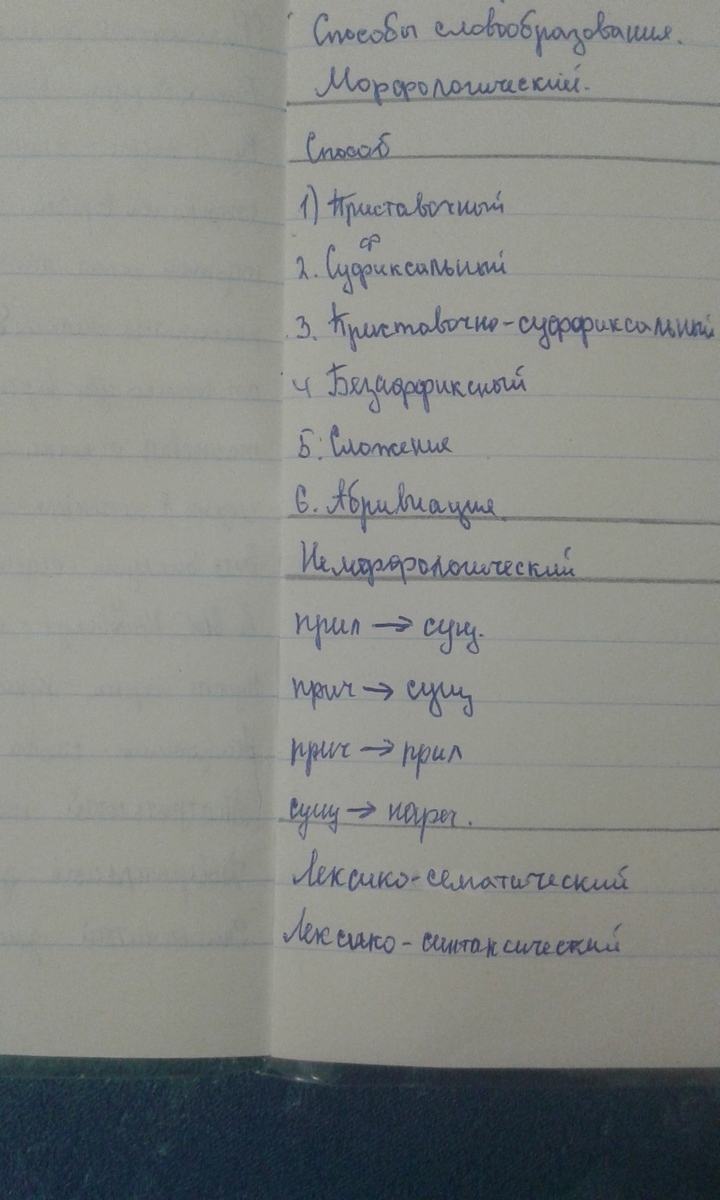 Способы словообразования.
Морфологический.
Способ
1) Приставочный
2. Суффиксальный
3. Приставочно-суффиксальный
4 Безаффиксный
5. Сложение
6. Абривиация
Неморфологический
прил → сущ.
прич → сущ
прич → прил
сущ → нареч.
Лексико-сематический
Лексико-синтаксический